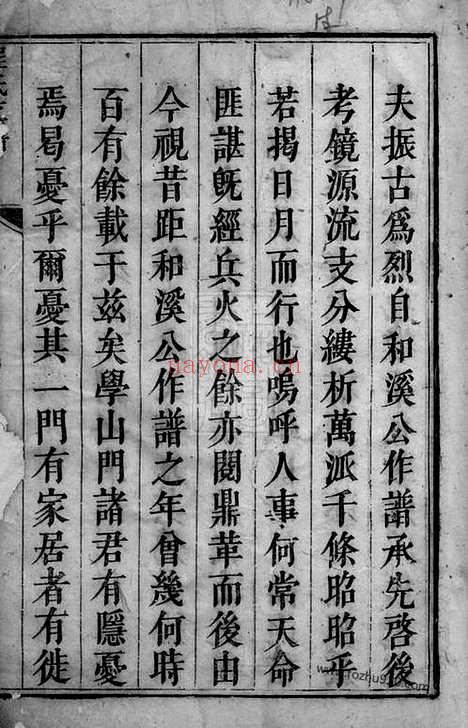 夫振古爲烈自和溪公作譜承先啓後
考鏡源流支分縷析萬派千條昭昭乎
若揭日月而行也嗚呼人事何常天命
匪諶旣經兵火之餘亦閱鼎革而後由
今視昔距和溪公作譜之年曾幾何時
百有餘載于兹矣學山門諸君有隱憂
焉曷憂乎爾憂其一門有家居者有徙
nayona.cn